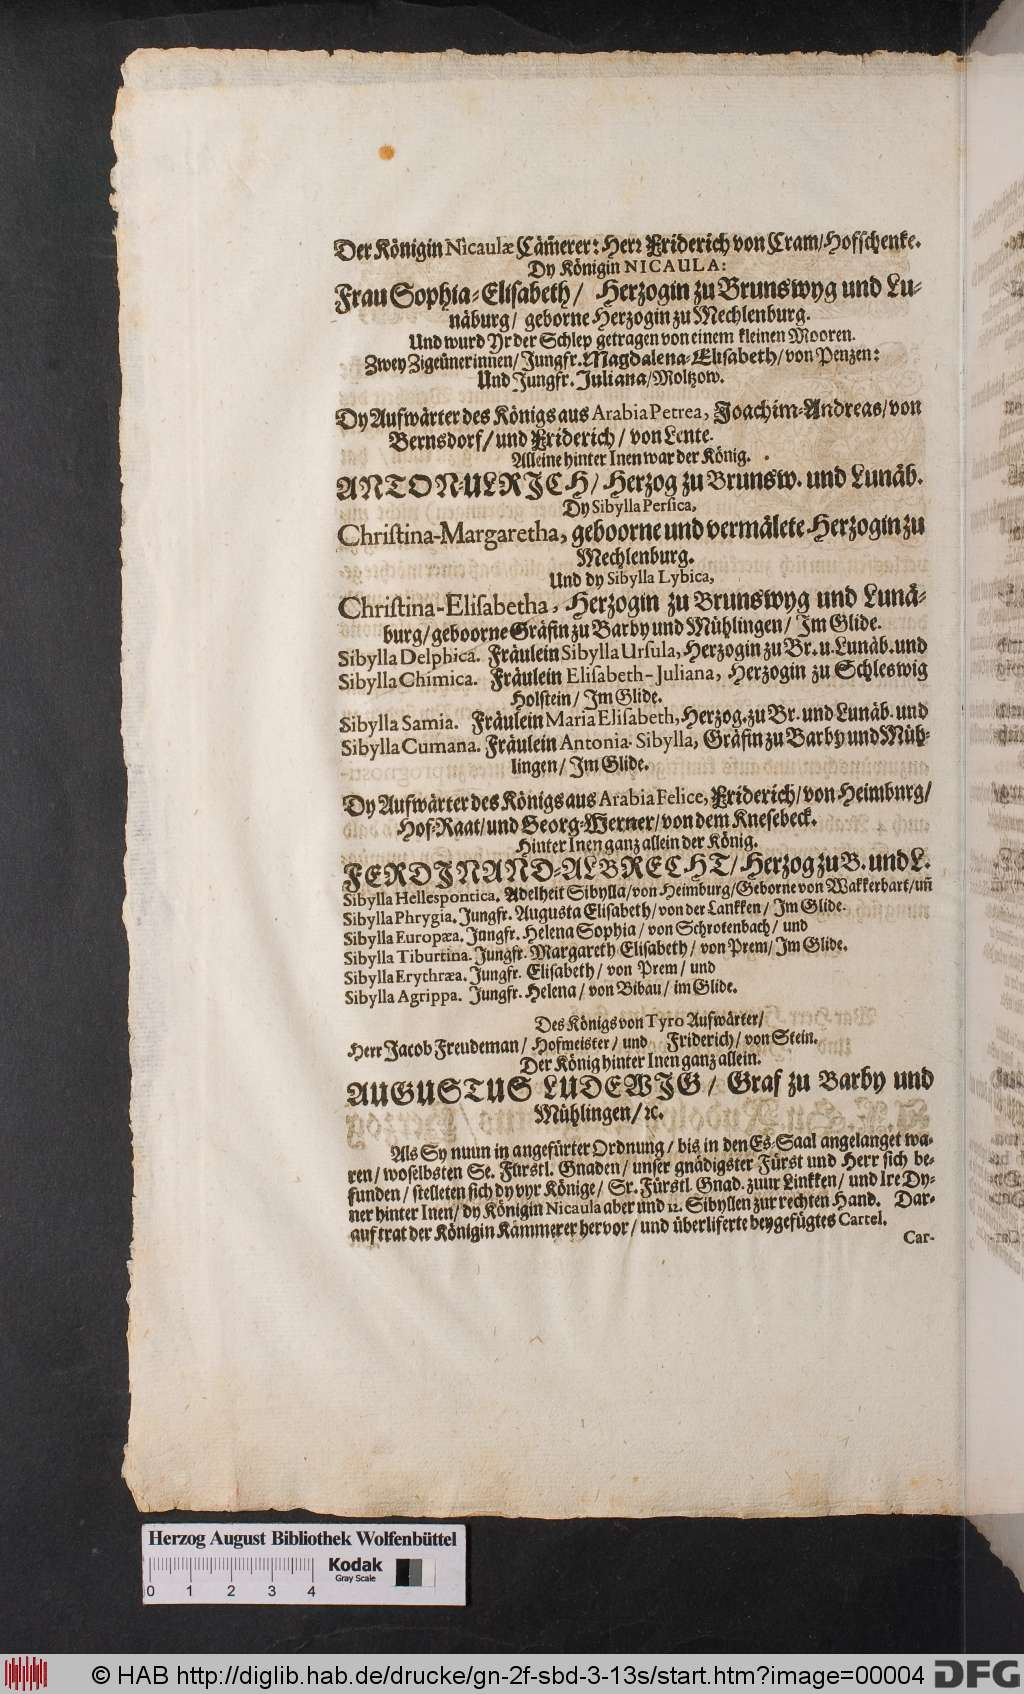 Der Königin Nicaulæ Cämerer: Herr Friderich von Cram/Hofschenke.
Dy Königin NICAULA:
Frau Sophia-Elisabeth/ Herzogin zu Brunswyg und Lu-
näburg/ geborne Herzogin zu Mechlenburg.
Und wurd Yr der Schlep getragen von einem kleinen Mooren.
Zwey Zigeünerinnen/ Jungfr. Magdalena-Elisabeth/von Penzen:
Und Jungfr. Juliana/Moltzow.
Dy Aufwärter des Königs aus Arabia Petrea, Joachim-Andreas/von
Bernsdorf/und Friderich/ von Lente.
Alleine hinter Inen war der König.
ANTON-ULRICH/ Herzog zu Brunsw. und Lunäb.
Dy Sibylla Persica,
Christina-Margaretha, geboorne und vermälete Herzogin zu
Mechlenburg.
Und dy Sibylla Lybica,
Christina-Elisabetha, Herzogin zu Brunswyg und Lunä-
burg/geboorne Gräfin zu Barby und Mühlingen/ Im Glide.
Sibylla Delphica. Fräulein Sibylla Ursula, Herzogin zu Br. u. Lunäb. und
Sibylla Chimica. Fräulein Elisabeth-Juliana, Herzogin zu Schleswig
Holstein/ Im Glide.
Sibylla Samia. Fräulein Maria Elisabeth, Herzog. zu Br. und Lunäb. und
Sibylla Cumana. Fräulein Antonia-Sibylla, Gräfin zu Barby und Müh-
lingen/ Im Glide.
Dy Aufwärter des Königs aus Arabia Felice, Friderich/von Heimburg/
Hof-Raat/und Georg-Werner/von dem Knesebeck.
Hinter Inen ganz allein der König.
FERDINAND-ALBRECHT/ Herzog zu B. und L.
Sibylla Hellespontica. Adelheit Sibylla/von Heimburg/Geborne von Wakkerbart/uñ
Sibylla Phrygia. Jungfr. Augusta Elisabeth/von der Lankken/ Im Glide.
Sibylla Europæa. Jungfr. Helena Sophia/ von Schrotenbach/ und
Sibylla Tiburtina. Jungfr. Margareth Elisabeth/ von Prem/ Im Glide.
Sibylla Erythræa. Jungfr. Elisabeth/ von Prem/ und
Sibylla Agrippa. Jungfr. Helena/ von Bibau/ im Glide.
Des Königs von Tyro Aufwärter/
Herr Jacob Freudeman/ Hofmeister/ und Friderich/ von Stein.
Der König hinter Inen ganz allein.
AUGUSTUS LUDEWIG/ Graf zu Barby und
Mühlingen/ ꝛc.
Als Sy nuun in angefürter Ordnung/ bis in den Es-Saal angelanget wa-
ren/ woselbsten Se. Fürstl. Gnaden/ unser gnädigster Fürst und Herr sich be-
funden/ stelleten sich dy vyr Könige/ Sr. Fürstl. Gnad. zuur Linkken/ und Ire Dy-
ner hinter Inen/ dy Königin Nicaula aber und 12. Sibyllen zur rechten Hand. Dar-
auf trat der Königin Kämmerer hervor/ und überliferte beygefügtes Cartel.
Car-
Herzog August Bibliothek Wolfenbüttel
Kodak
Gray Scale
0 1 2 3 4
© HAB http://diglib.hab.de/drucke/gn-2f-sbd-3-13s/start.htm?image=00004 DFG